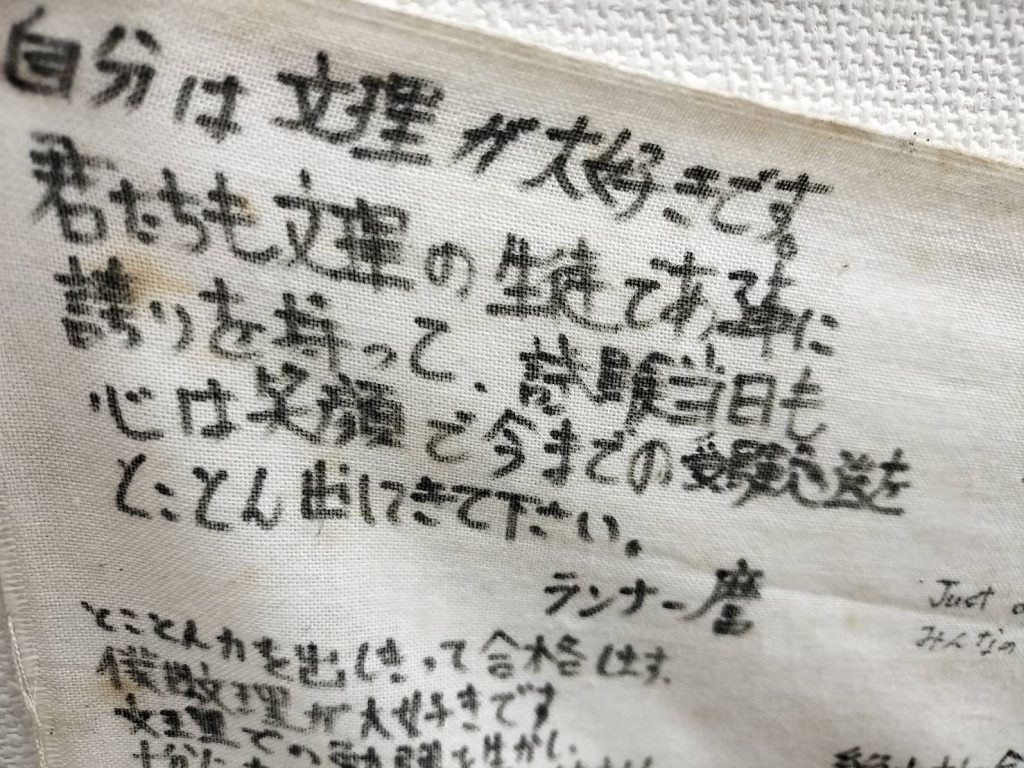 自分は文理が大好きです。
君たちも文理の生徒である事に
誇りを持って、試験当日も
心は笑顔で今までの受験勉強を
とことん出しきて下さい。
ランナー
Just
みんなの
とことん力を出しきって合格します。
僕 理が大好きです
文理での を生かし